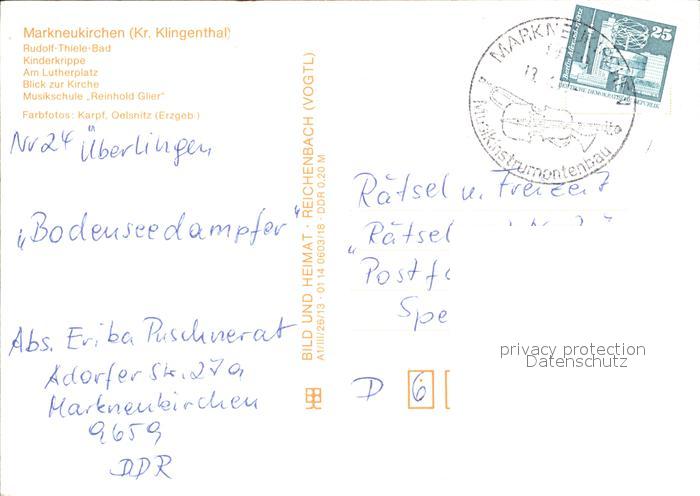 Markneukirchen (Kr. Klingenthal)
Rudolf-Thiele-Bad
Kinderkrippe
Am Lutherplatz
Blick zur Kirche
Musikschule „Reinhold Glier"
Farbfotos: Karpf, Oelsnitz (Erzgeb.)
Nr 24 Überlingen
„Bodenseedampfer"
Abs. Eriba Puschnerat
Adorfer Str. 27a
Markneukirchen
9659
DDR
BILD UND HEIMAT · REICHENBACH (VOGTL)
A1/III/26/13 · 01 14 0603/18 · DDR 0,20 M
MARKNEUKIRCHEN
Musikinstrumentenbau
25
Berlin, Alexanderplatz
DEUTSCHE DEMOKRATISCHE REPUBLIK
Rätsel u. Freizeit
„Rätsel
Postf
Spe
D 6
privacy protection
Datenschutz